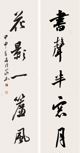 書聲半窗月
花影一簾風